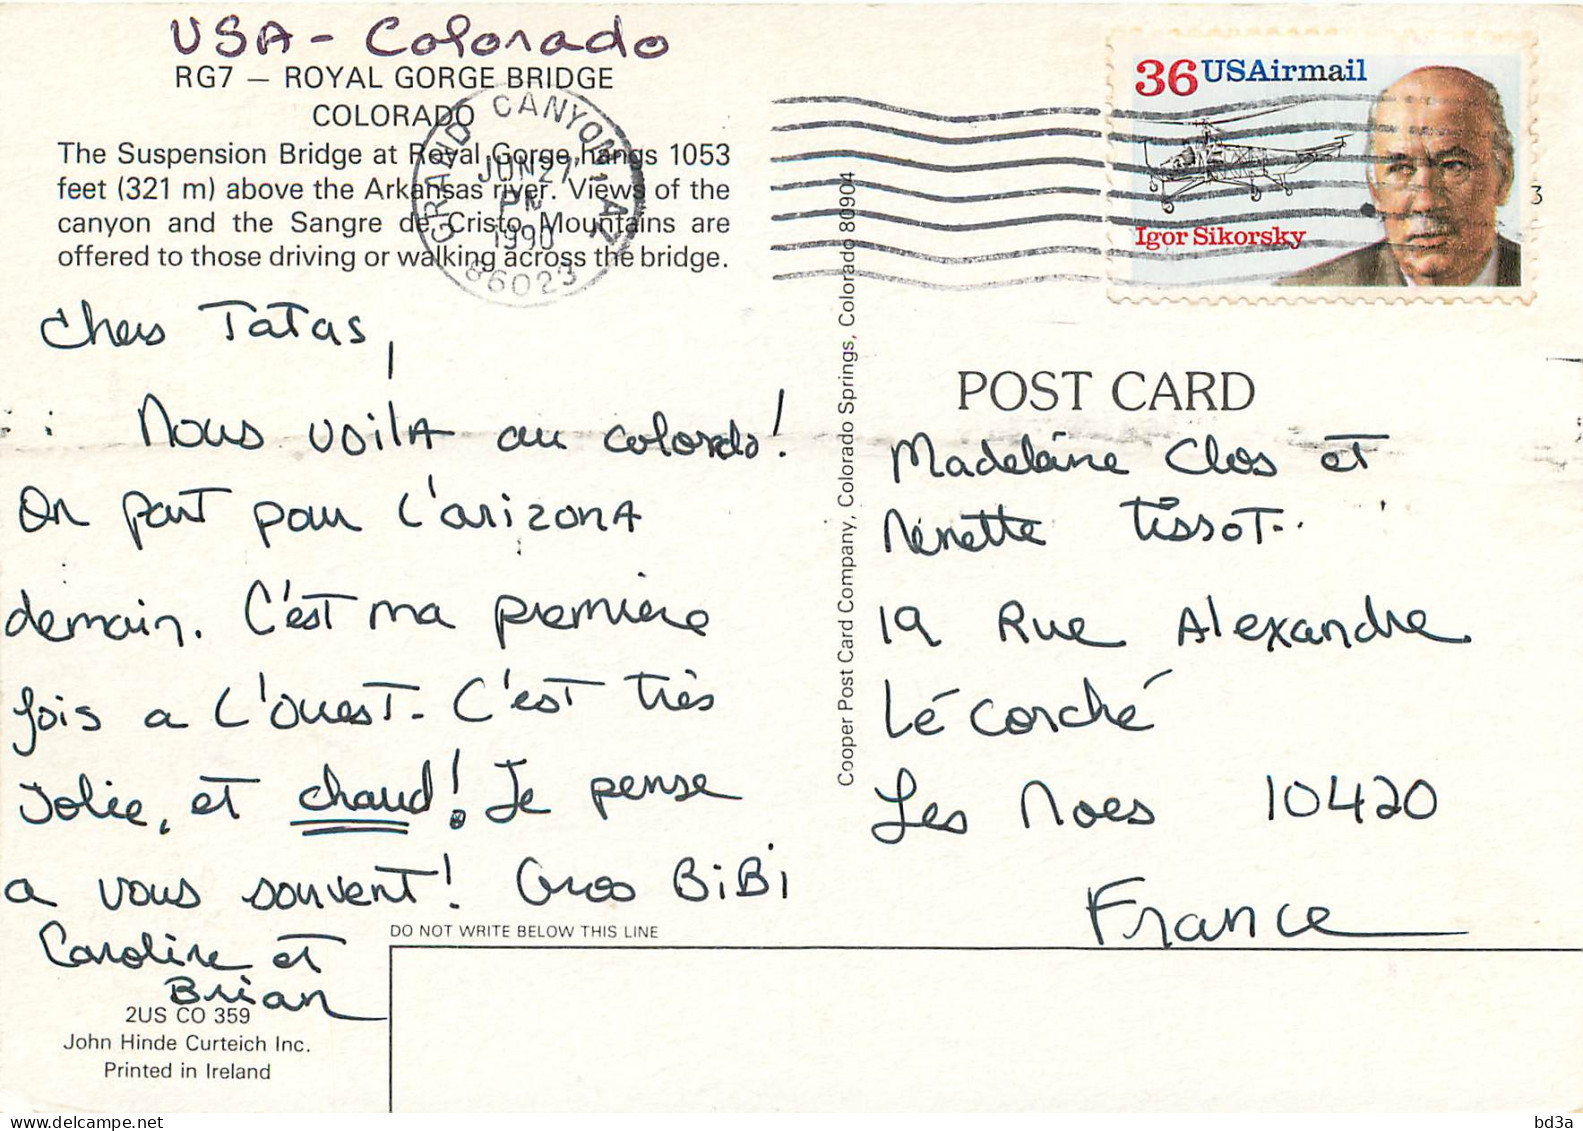 USA - Colorado
RG7 — ROYAL GORGE BRIDGE
COLORADO
The Suspension Bridge at Royal Gorge, hangs 1053
feet (321 m) above the Arkansas river. Views of the
canyon and the Sangre de Cristo Mountains are
offered to those driving or walking across the bridge.
GRAND CANYON, AZ
JUN 27
PM
1990
86023
36 USAirmail
Igor Sikorsky
3
Chers Tatas,
Nous voilà au colorado!
On part pour l'arizona
demain. C'est ma première
fois a l'ouest. C'est très
Jolie, et chaud! Je pense
a vous souvent! Gros BiBi
Caroline et
Brian
2US CO 359
John Hinde Curteich Inc.
Printed in Ireland
DO NOT WRITE BELOW THIS LINE
Cooper Post Card Company, Colorado Springs, Colorado 80904
POST CARD
Madeleine Clos et
Nénette Tissot.
19 Rue Alexandre
Lé corché
Les Noes 10420
France
delcampe.net
bd3a